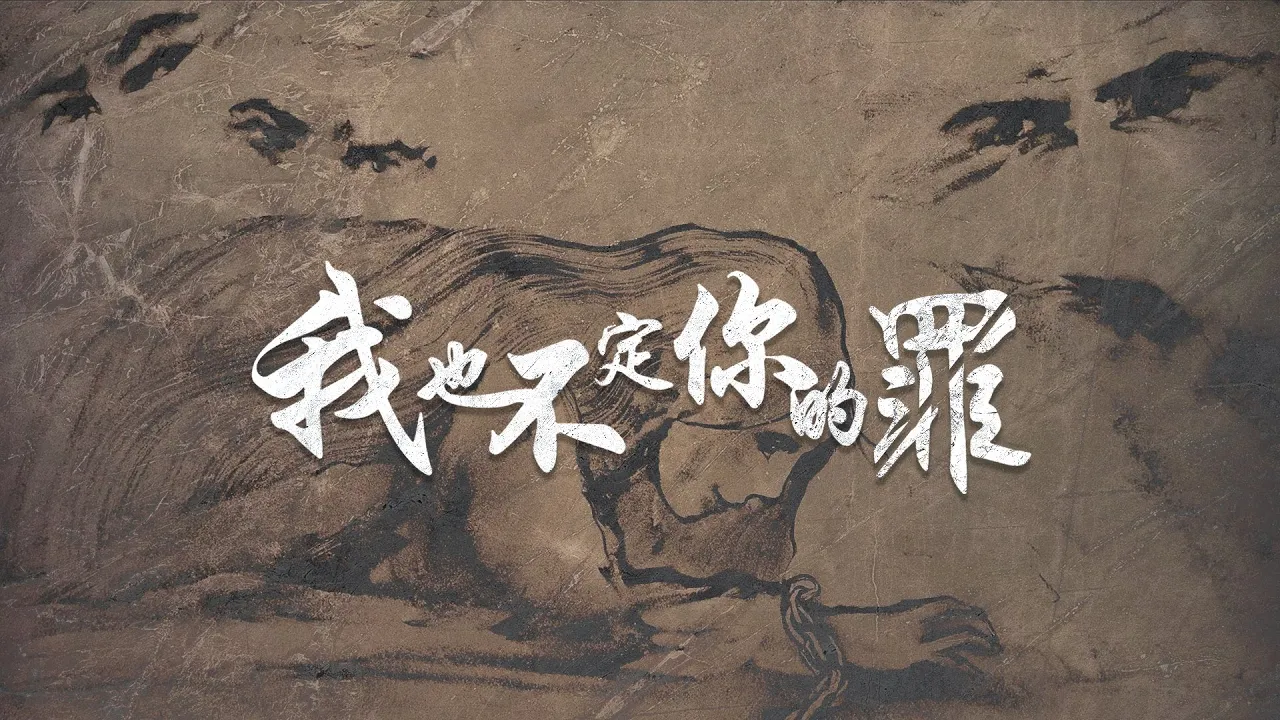 我也不定你的罪